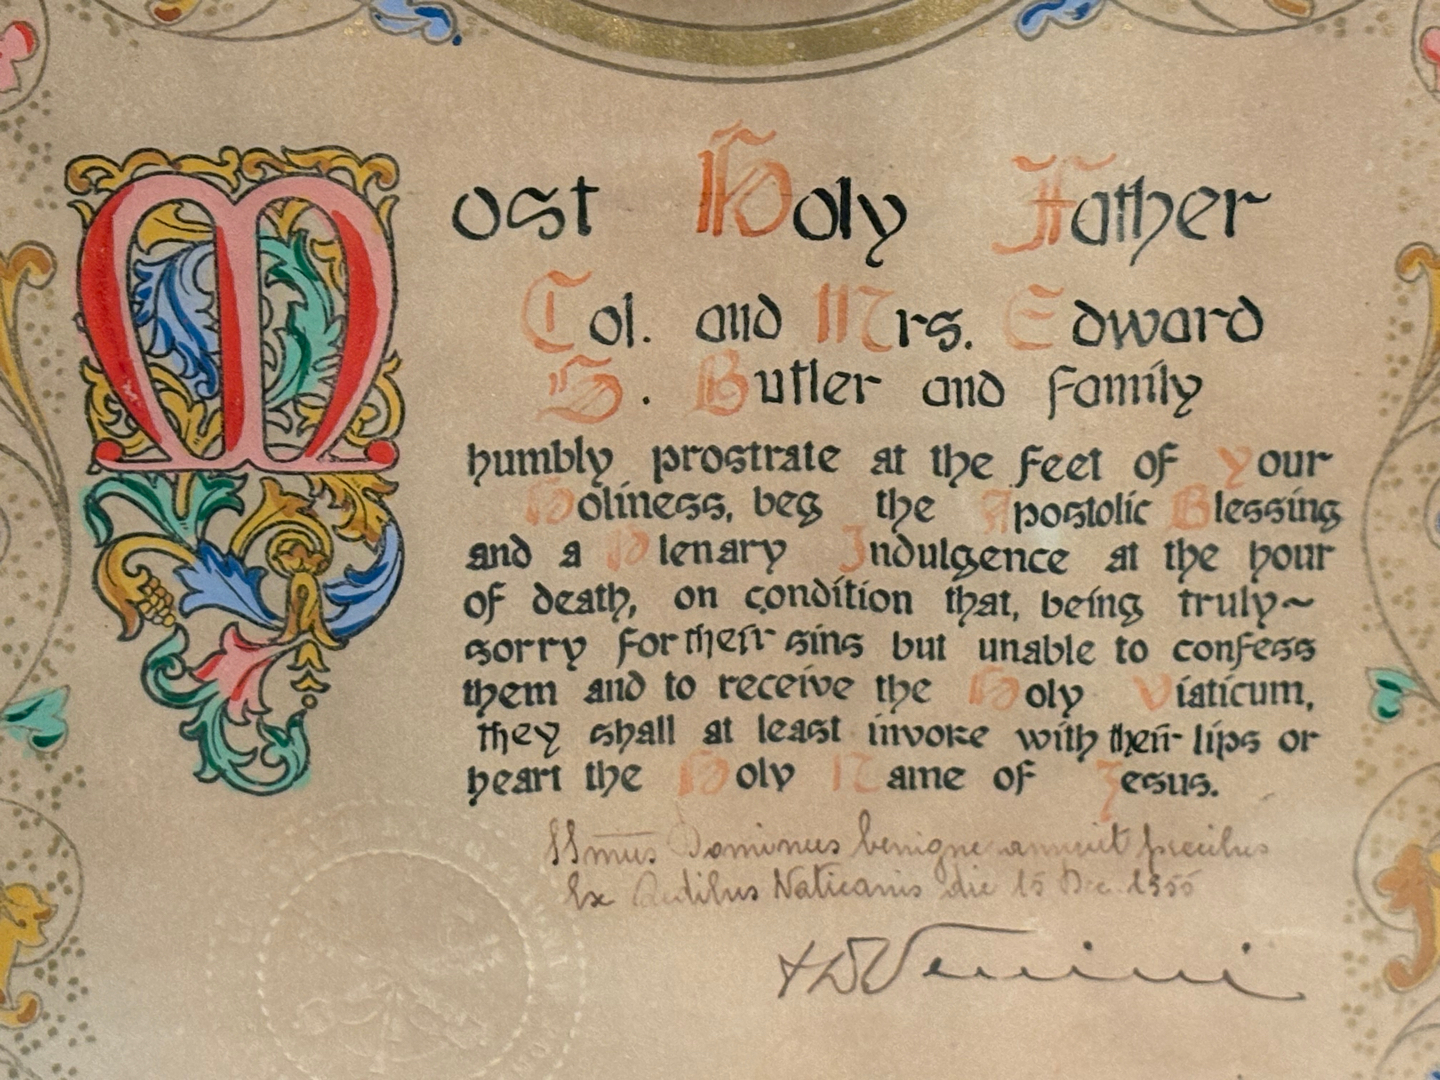 Most Holy Father
Col. and Mrs. Edward
S. Butler and family
humbly prostrate at the feet of Your
Holiness, beg the Apostolic Blessing
and a Plenary Indulgence at the hour
of death, on condition that, being truly~
sorry for their sins but unable to confess
them and to receive the Holy Viaticum,
they shall at least invoke with their lips or
heart the Holy Name of Jesus.
SSmus Dominus benigne annuit precibus
Ex Aedibus Vaticanis die 15 Dec. 1955
+ D Venini